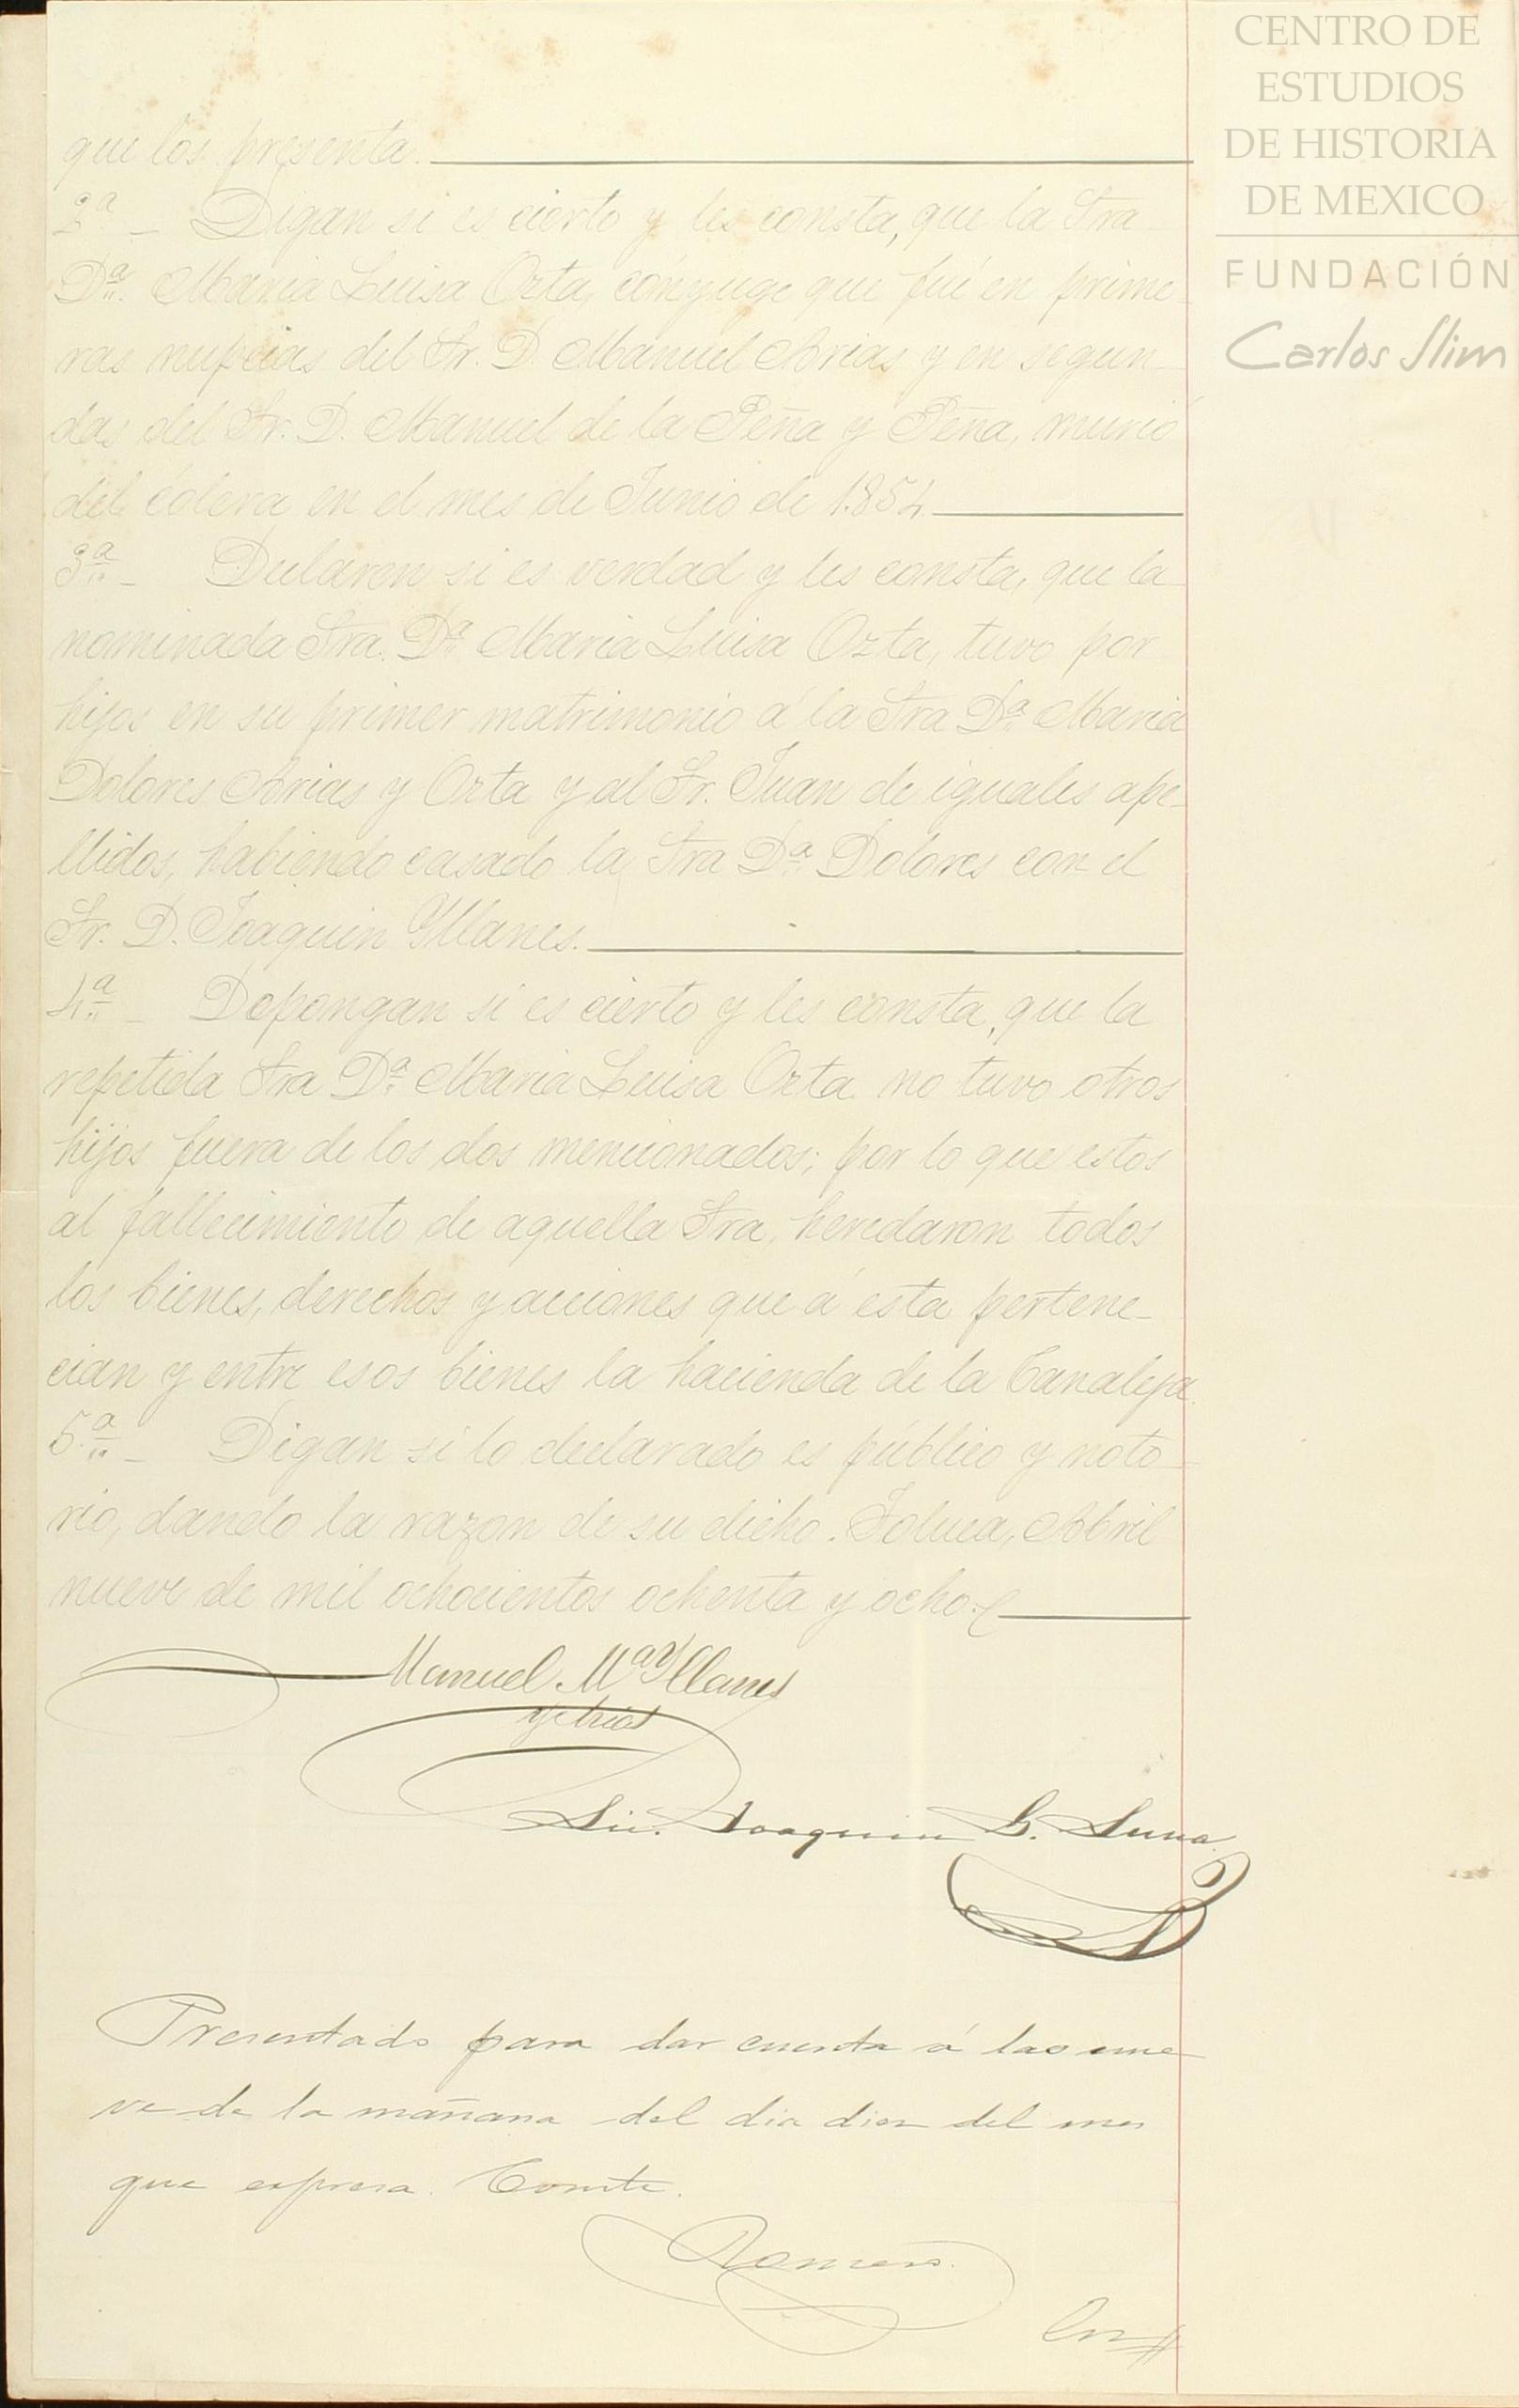 que los presenta.
2ª — Digan si es cierto y les consta, que la Sra
Dª. Maria Luisa Orta, cónyuge que fué en prime-
ras nupcias del Sr. D. Manuel Arias y en segun-
das del Sr. D. Manuel de la Peña y Peña, murió
del cólera en el mes de Junio de 1854.
3ª — Declaren si es verdad y les consta, que la
nominada Sra. Dª Maria Luisa Orta, tuvo por
hijos en su primer matrimonio á la Sra Dª Maria
Dolores Arias y Orta y al Sr. Juan de iguales ape-
llidos, habiendo casado la Sra Dª Dolores con el
Sr. D. Joaquin Yllanes.
4ª — Depongan si es cierto y les consta, que la
repetida Sra Dª Maria Luisa Orta no tuvo otros
hijos fuera de los dos mencionados; por lo que estos
al fallecimiento de aquella Sra, heredaron todos
los bienes, derechos y acciones que á esta pertene-
cian y entre esos bienes la hacienda de la Canaleja.
5ª — Digan si lo declarado es público y noto-
rio, dando la razon de su dicho. Toluca, Abril
nueve de mil ochocientos ochenta y ocho.
Manuel Mª Yllanes
y Arias
Lic. Joaquin G. Luna
Presentado para dar cuenta á las nue-
ve de la mañana del dia diez del mes
que espresa. Conste.
Romero.
CENTRO DE
ESTUDIOS
DE HISTORIA
DE MEXICO
FUNDACIÓN
Carlos Slim